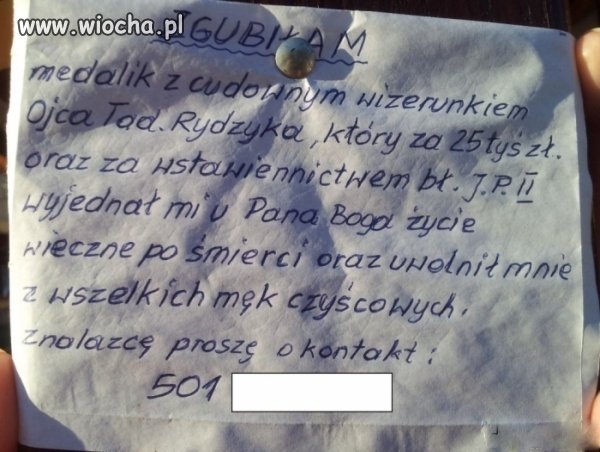 www.wiocha.pl
ZGUBIŁAM
medalik z cudownym wizerunkiem
Ojca Tad. Rydzyka, który za 25 tyś zł.
oraz za wstawiennictwem bł. J.P. II
wyjednał mi u Pana Boga życie
wieczne po śmierci oraz uwolnił mnie
z wszelkich męk czyścowych.
Znalazcę proszę o kontakt:
501